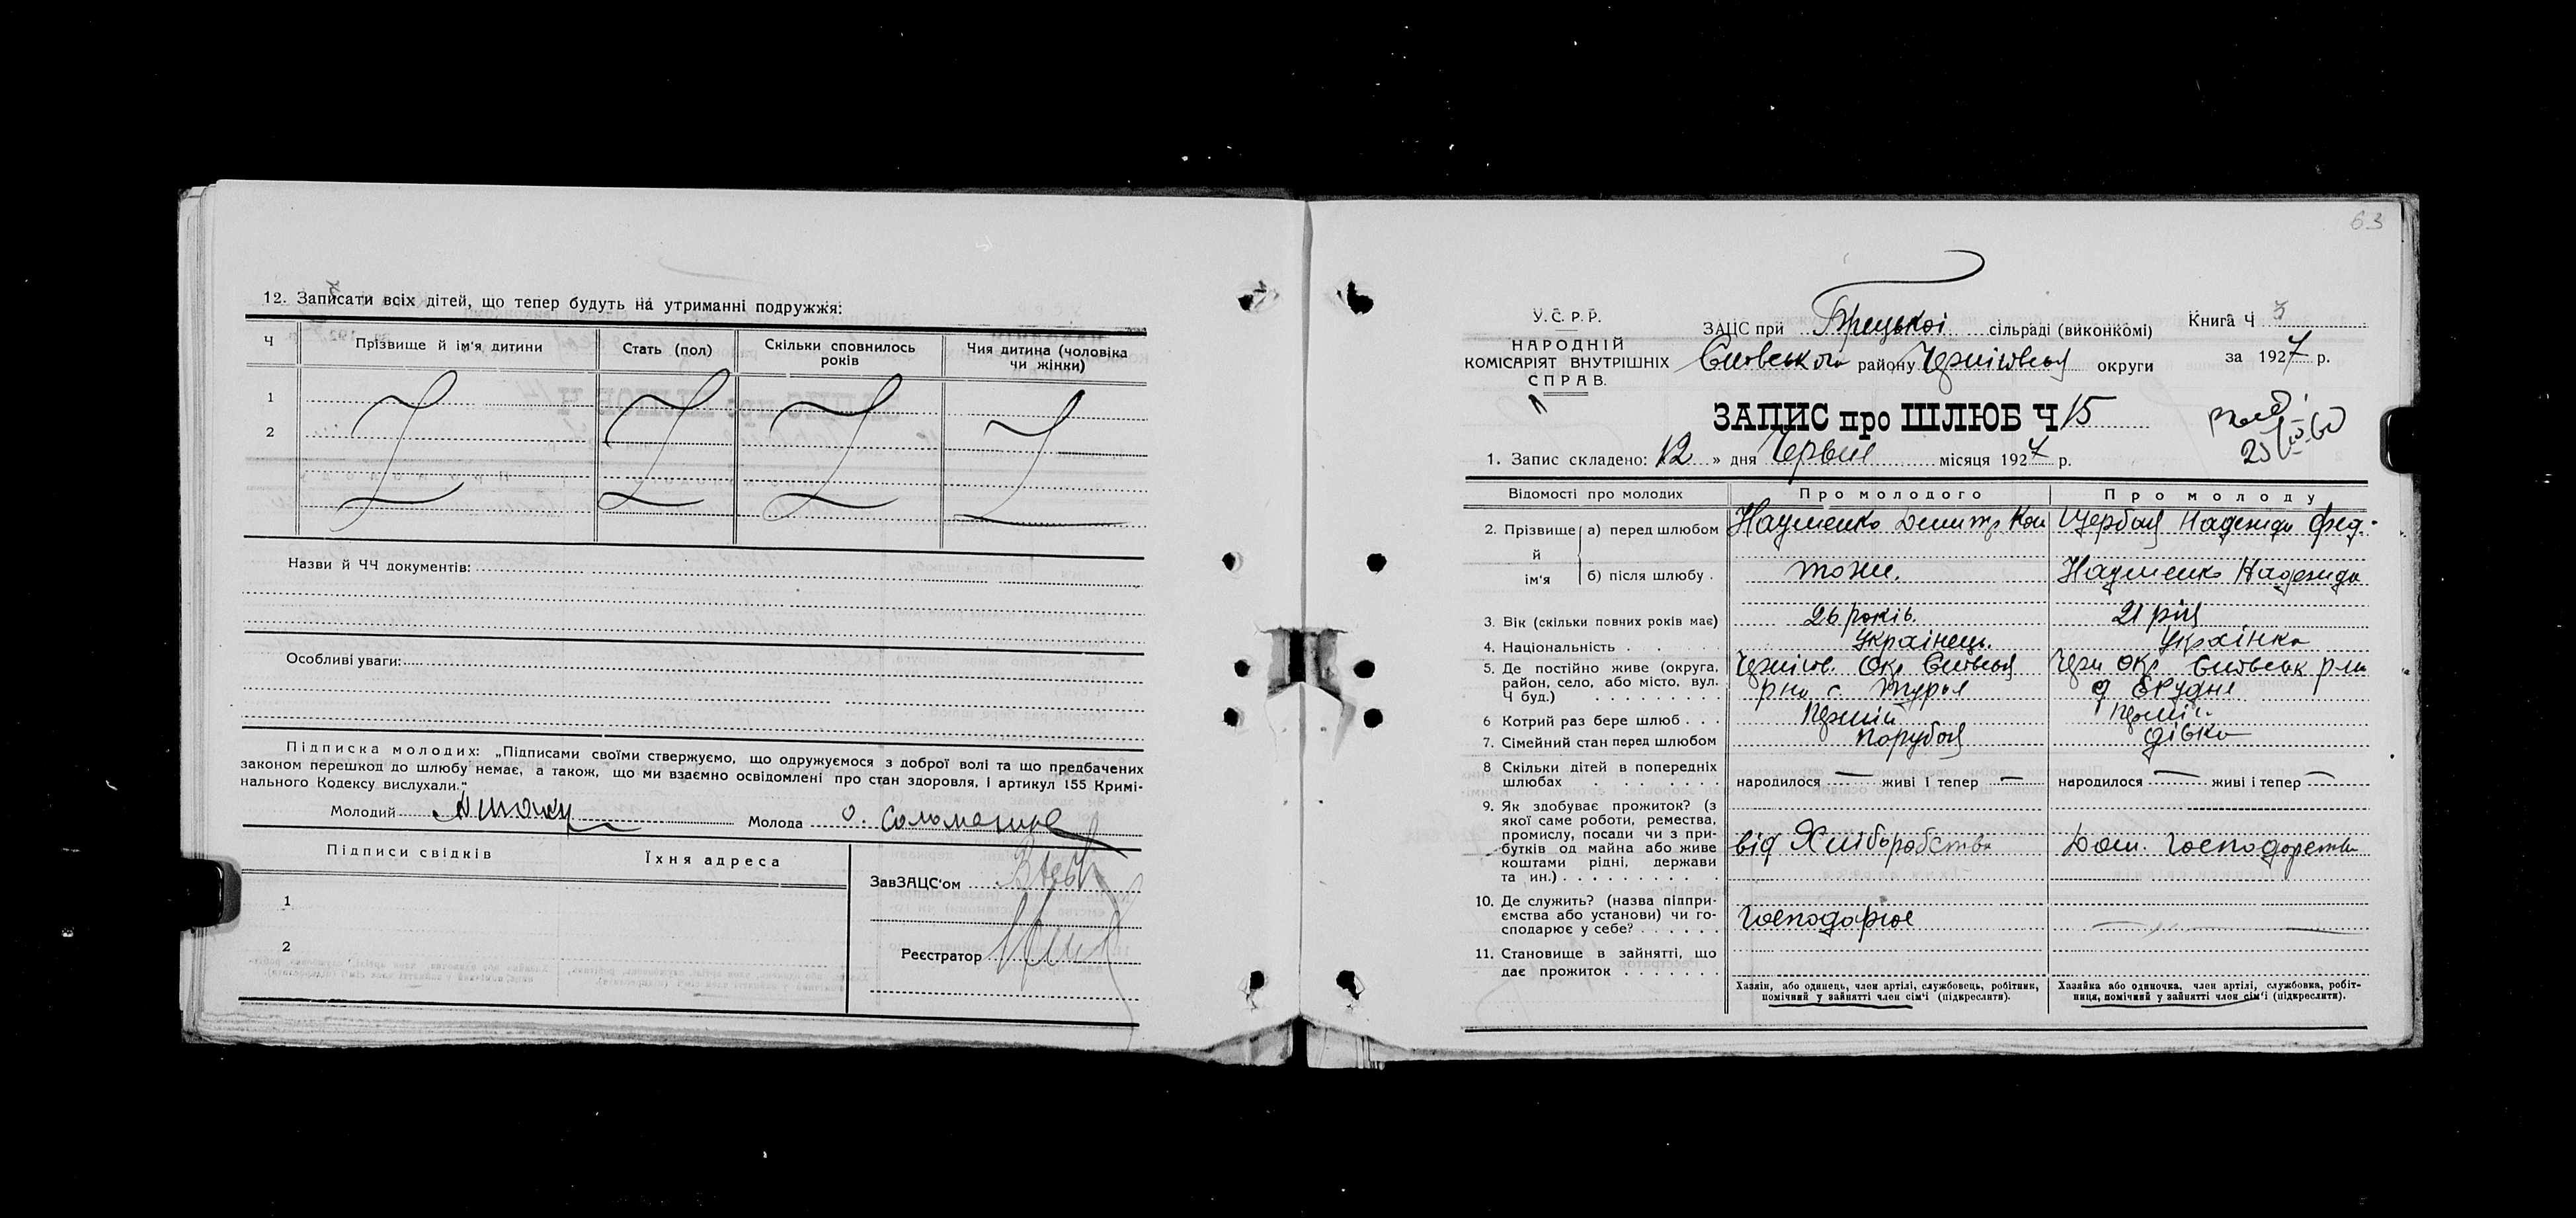 12. Записати всіх дітей, що тепер будуть на утриманні подружжя:
Ч Прізвище й ім'я дитини Стать (пол) Скільки сповнилось років Чия дитина (чоловіка чи жінки)
1
2
Назви й ЧЧ документів:
Особливі уваги:
Підписка молодих: „Підписами своїми стверджуємо, що одружуємося з доброї волі та що предбачених
законом перешкод до шлюбу немає, а також, що ми взаємно освідомлені про стан здоровля, і артикул 155 Кримі-
нального Кодексу вислухали."
Молодий Молода О. Соломагине
Підписи свідків Їхня адреса
ЗавЗАЦС'ом
1
Реєстратор
2
63
У.С.Р.Р.
НАРОДНІЙ
КОМІСАРІЯТ ВНУТРІШНІХ
СПРАВ.
ЗАЦС при сільраді (виконкомі)
району округи
Книга Ч 3
за 1927 р.
ЗАПИС про ШЛЮБ Ч 15
1. Запис складено: 12 » дня Червня місяця 1927 р.
Відомості про молодих Про молодого Про молоду
2. Прізвище й ім'я а) перед шлюбом Науменко Дмитр Кон Щербак Надежда Фед.
б) після шлюбу . тоже. Науменко Надежда
3. Вік (скільки повних років має) 26 років. 21 рік
4. Національність . . . . Українець. Українка
5. Де постійно живе (округа, район, село, або місто, вул. Ч буд.) Черніг. Окр с. Турья Черн Окр
6 Котрий раз бере шлюб . . . Перший Перший
7. Сімейний стан перед шлюбом Парубок дівка
8 Скільки дітей в попередніх шлюбах народилося — живі і тепер — народилося — живі і тепер —
9. Як здобуває прожиток? (з якої саме роботи, ремества, промислу, посади чи з прибутків од майна або живе коштами рідні, держави та ин.) від Хліборобства Дом. Господарства
10. Де служить? (назва підприємства або установи) чи господарює у себе? Господарює —
11. Становище в зайнятті, що дає прожиток
Хазяїн, або одинець, член артілі, службовець, робітник, помічний у зайнятті член сім'ї (підкреслити).
Хазяйка або одиночка, член артілі, службовка, робітниця, помічний у зайнятті член сім'ї (підкреслити).